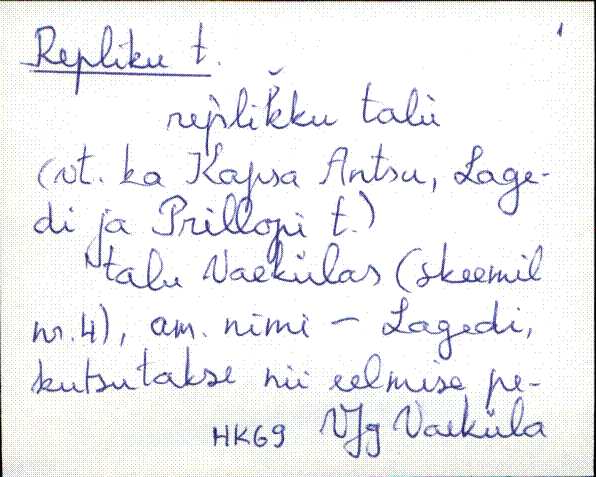 1
Repliku t.
rèplik̆ku talù
(vt. ka Kapsa Antsu, Lage-
di ja Prillopi t.)
talu Vaekülas (skeemil
nr. 4), am. nimi – Lagedi,
kutsutakse nii eelmise pe-
HK69 VJg Vaeküla